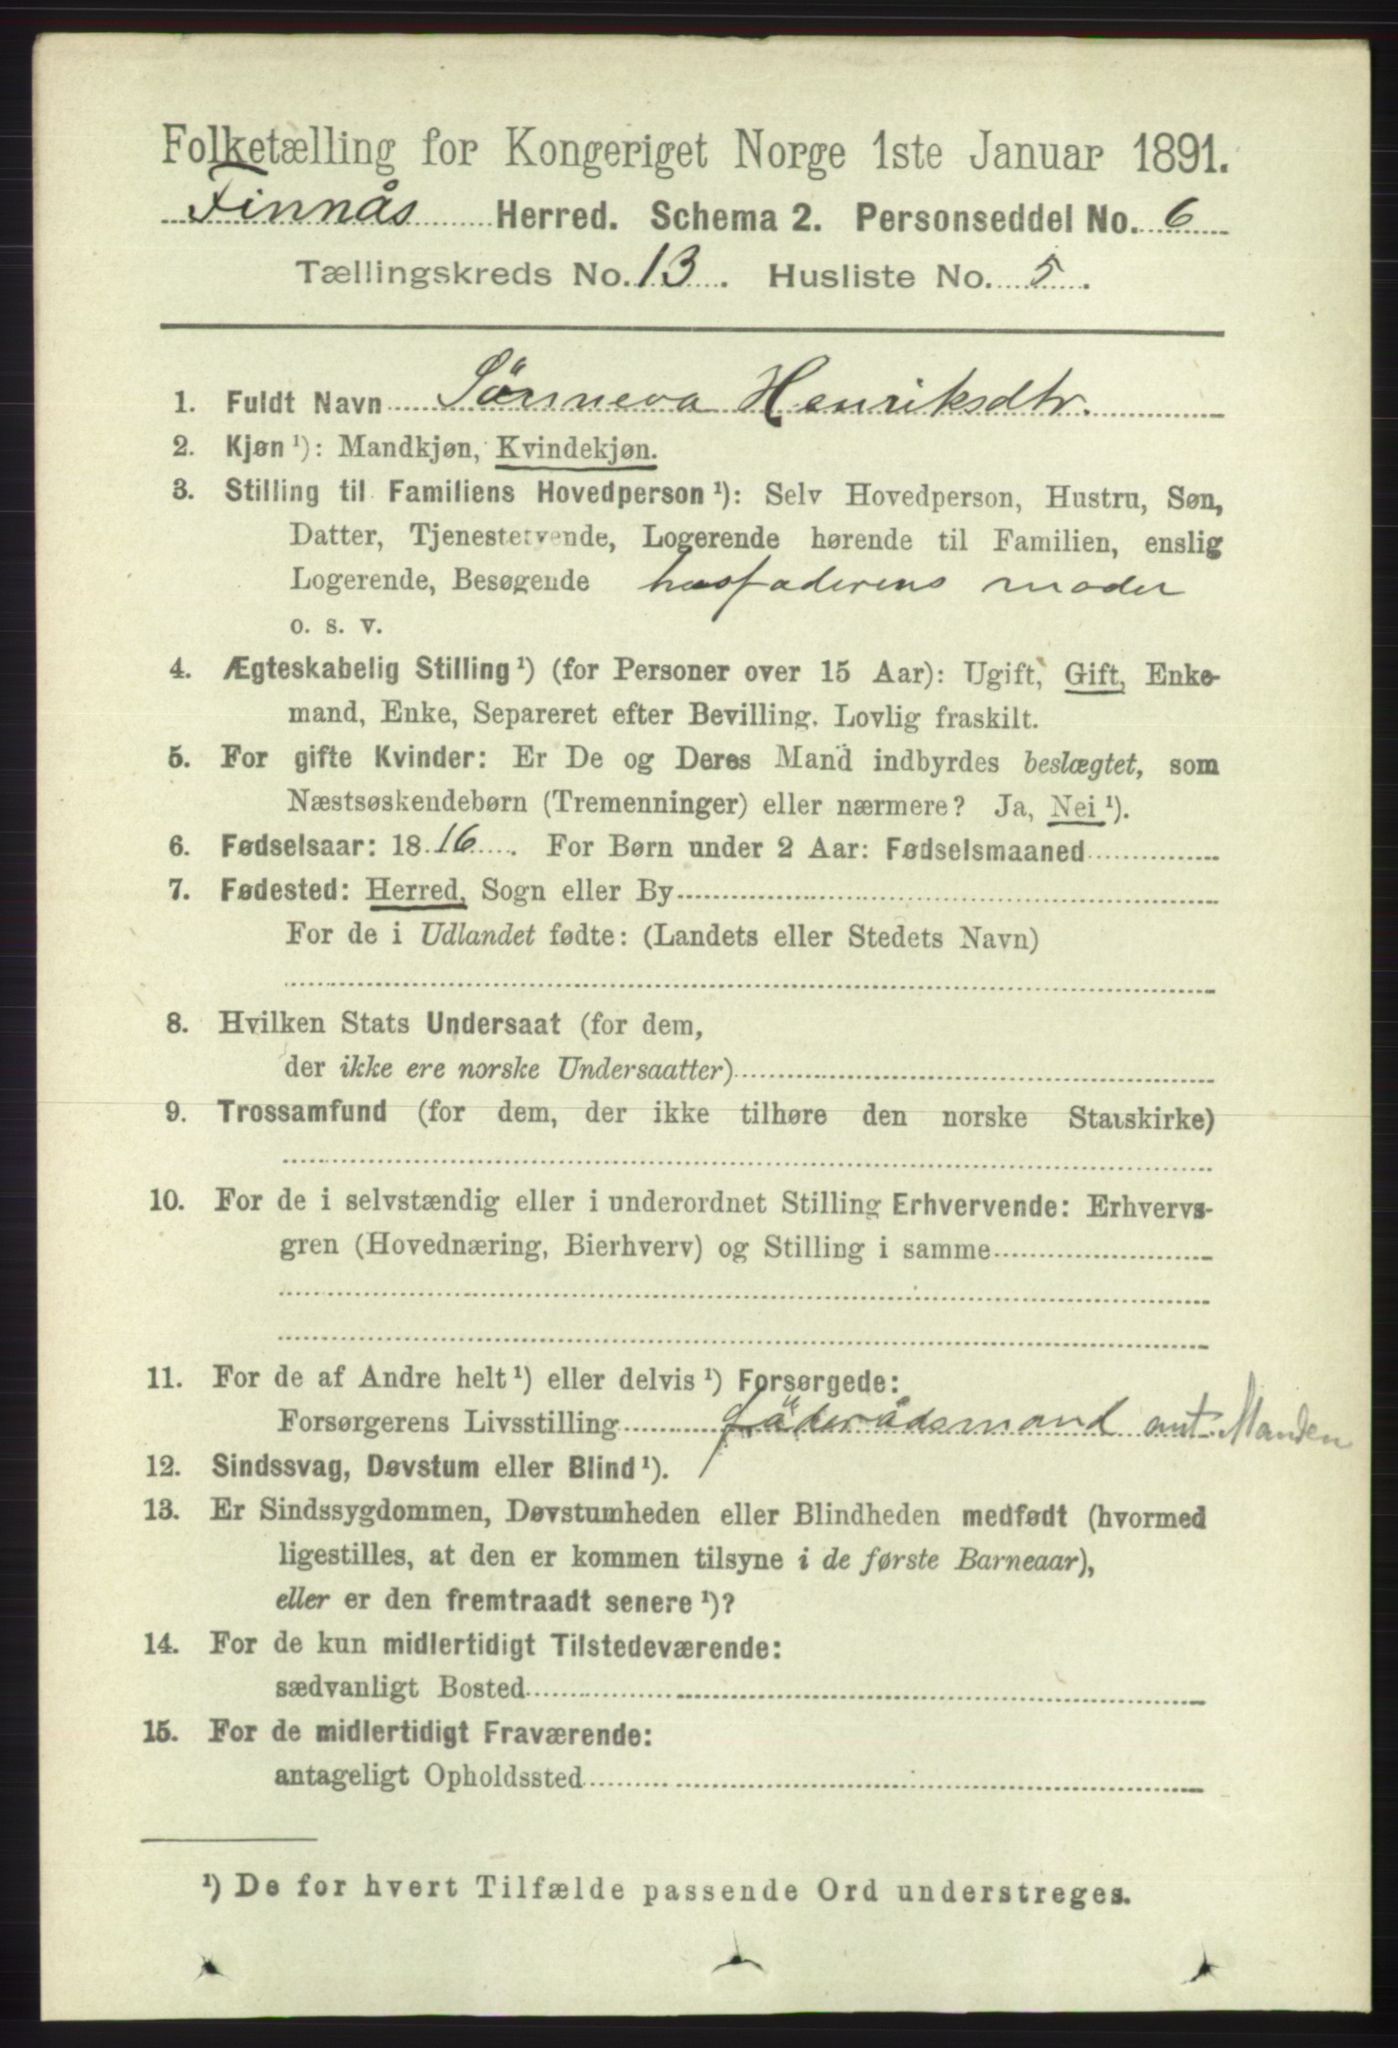 Folketælling for Kongeriget Norge 1ste Januar 1891.
Finnås Herred. Schema 2. Personseddel No. 6
Tællingskreds No. 13. Husliste No. 5.
1. Fuldt Navn Sønneva Henriksdtr.
2. Kjøn ¹): Mandkjøn, Kvindekjøn.
3. Stilling til Familiens Hovedperson ¹): Selv Hovedperson, Hustru, Søn,
Datter, Tjenestetyende, Logerende hørende til Familien, enslig
Logerende, Besøgende husfaderens moder
o. s. v.
4. Ægteskabelig Stilling ¹) (for Personer over 15 Aar): Ugift, Gift, Enke-
mand, Enke, Separeret efter Bevilling. Lovlig fraskilt.
5. For gifte Kvinder: Er De og Deres Mand indbyrdes beslægtet, som
Næstsøskendebørn (Tremenninger) eller nærmere? Ja, Nei ¹).
6. Fødselsaar: 1816. For Børn under 2 Aar: Fødselsmaaned
7. Fødested: Herred, Sogn eller By
For de i Udlandet fødte: (Landets eller Stedets Navn)
8. Hvilken Stats Undersaat (for dem,
der ikke ere norske Undersaatter)
9. Trossamfund (for dem, der ikke tilhøre den norske Statskirke)
10. For de i selvstændig eller i underordnet Stilling Erhvervende: Erhvervs-
gren (Hovednæring, Bierhverv) og Stilling i samme
11. For de af Andre helt ¹) eller delvis ¹) Forsørgede:
Forsørgerens Livsstilling föderådsmand ant. Manden
12. Sindssvag, Døvstum eller Blind ¹).
13. Er Sindssygdommen, Døvstumheden eller Blindheden medfødt (hvormed
ligestilles, at den er kommen tilsyne i de første Barneaar),
eller er den fremtraadt senere ¹)?
14. For de kun midlertidigt Tilstedeværende:
sædvanligt Bosted
15. For de midlertidigt Fraværende:
antageligt Opholdssted
¹) De for hvert Tilfælde passende Ord understreges.